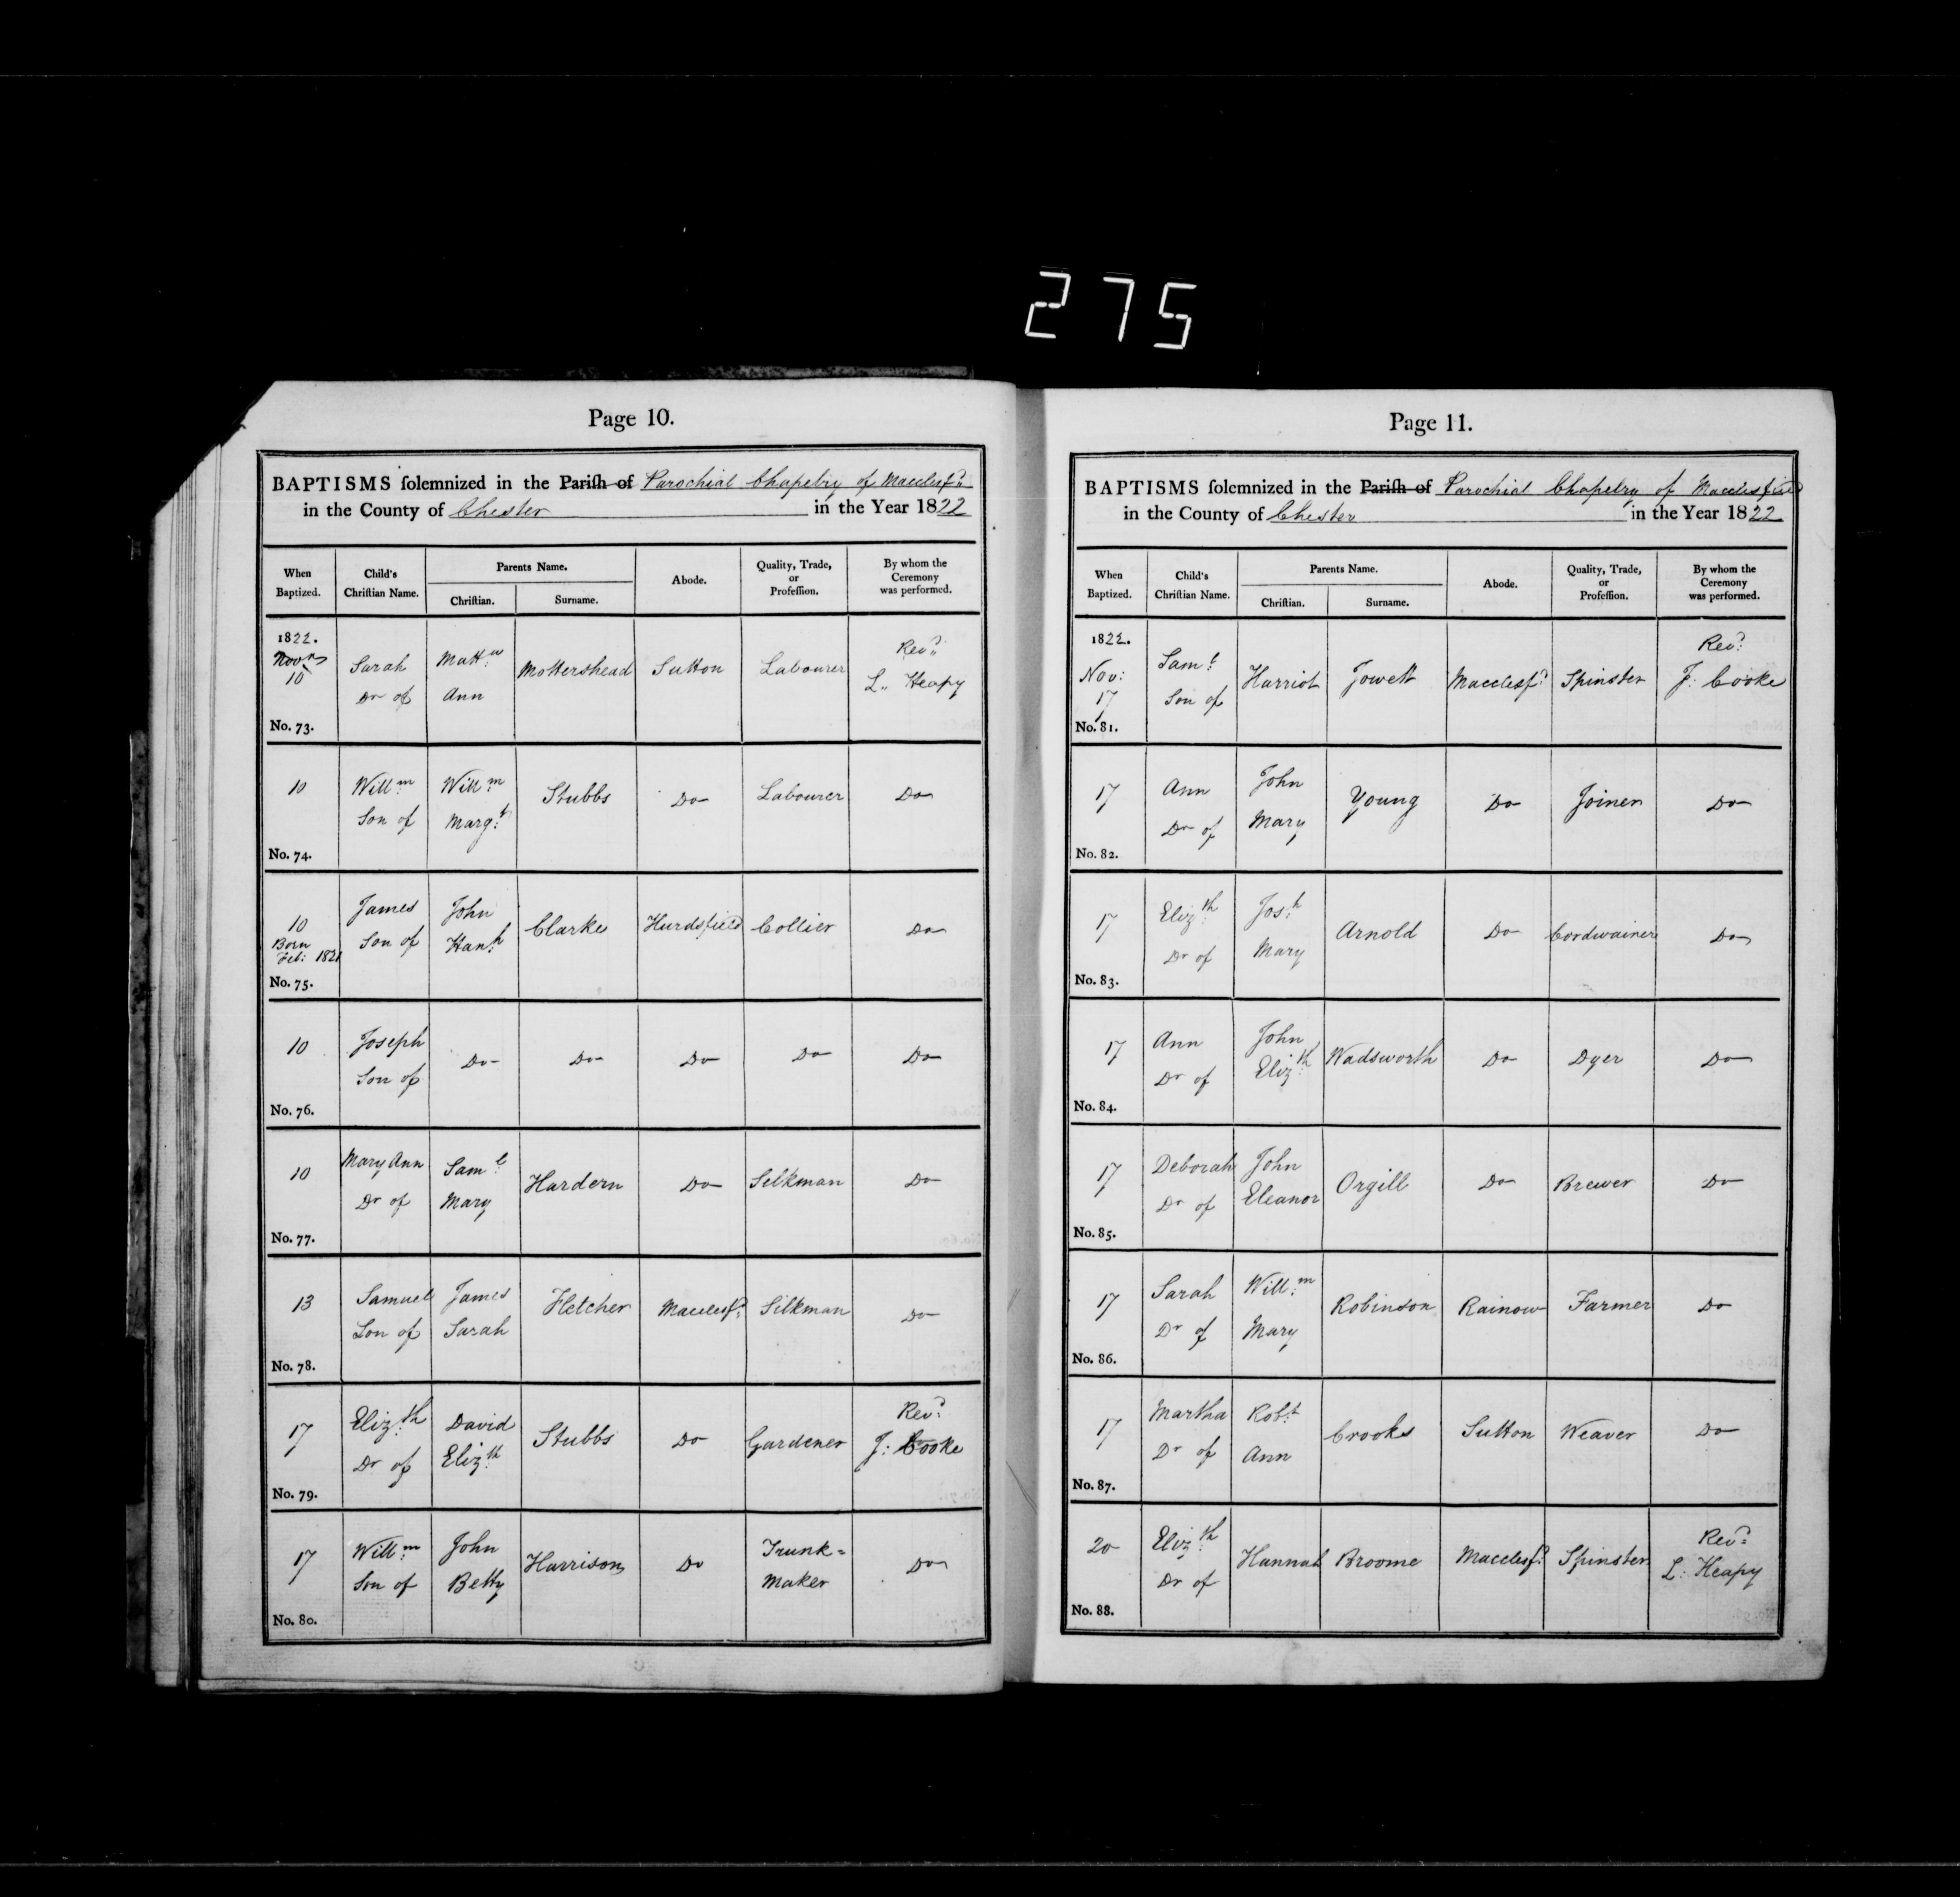 275
Page 10.
BAPTISMS solemnized in the Parish of Parochial Chapelry of Macclesfd
in the County of Chester in the Year 1822
When Baptized. Child's Christian Name. Parents Name. Christian. Surname. Abode. Quality, Trade, or Profession. By whom the Ceremony was performed.
1822. Novr 10 No. 73. Sarah Dr of Mattw Ann Mottershead Sutton Labourer Revd L. Heapy
10 No. 74. Willm Son of Willm Margt Stubbs Do Labourer Do
10 Born Feb: 1821 No. 75. James Son of John Hanh Clarke Hurdsfield Collier Do
10 No. 76. Joseph Son of Do Do Do Do Do
10 No. 77. Mary Ann Dr of Saml Mary Hardern Do Silkman Do
13 No. 78. Samuel Son of James Sarah Fletcher Macclesfd Silkman Do
17 No. 79. Elizth Dr of David Elizth Stubbs Do Gardener Revd J: Cooke
17 No. 80. Willm Son of John Betty Harrison Do Trunk= Maker Do
Page 11.
BAPTISMS solemnized in the Parish of Parochial Chapelry of Macclesfield
in the County of Chester in the Year 1822
When Baptized. Child's Christian Name. Parents Name. Christian. Surname. Abode. Quality, Trade, or Profession. By whom the Ceremony was performed.
1822. Nov: 17 No. 81. Saml Son of Harriot Jowett Macclesfd Spinster Revd J: Cooke
17 No. 82. Ann Dr of John Mary Young Do Joiner Do
17 No. 83. Elizth Dr of Josh Mary Arnold Do Cordwainer Do
17 No. 84. Ann Dr of John Elizth Wadsworth Do Dyer Do
17 No. 85. Deborah Dr of John Eleanor Orgill Do Brewer Do
17 No. 86. Sarah Dr of Willm Mary Robinson Rainow Farmer Do
17 No. 87. Martha Dr of Robt Ann Crooks Sutton Weaver Do
20 No. 88. Elizth Dr of Hannah Broome Macclesfd Spinster Revd L: Heapy